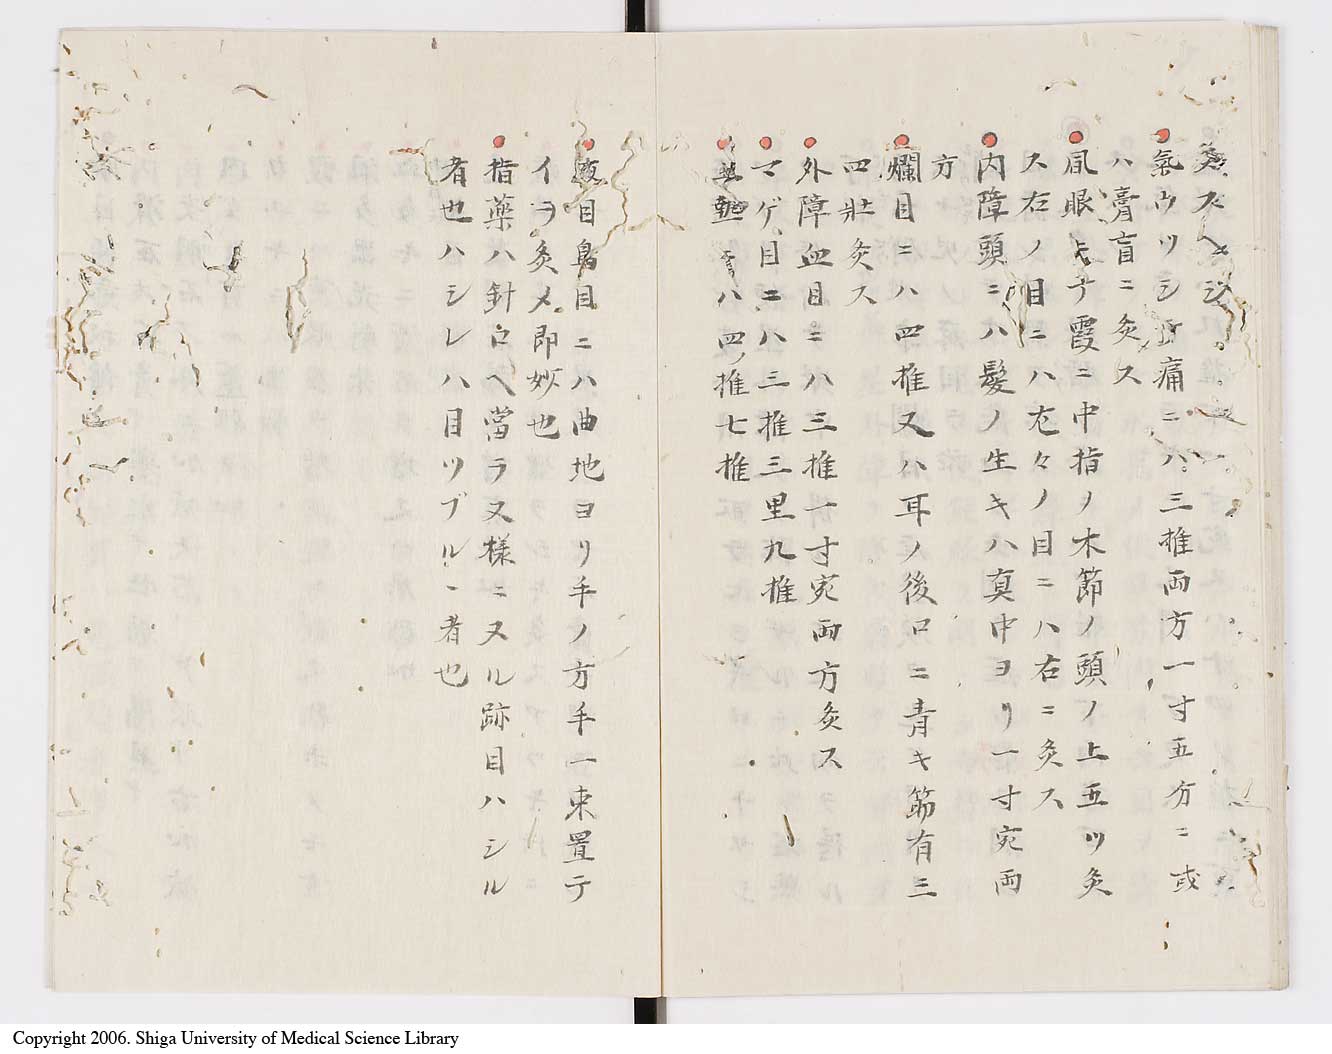 灸スヘシ
氣ウツシ痛ニハ三椎両方一寸五分ニ或
ハ膏盲ニ灸ス
風眼キナ霞ニ中指ノ木節ノ頭ノ上五ツ灸
ス右ノ目ニハ左々ノ目ニハ右ニ灸ス
内障頭ニハ髪ノ生キハ真中ヨリ一寸宛両
方
爛目ニハ四椎又ハ耳ノ後口ニ青キ筋有三
四壮灸ス
外障血目ニハ三椎一寸宛両方灸ス
マゲ目ニハ三椎三里九椎
ハ四ノ椎七椎
夜目鳥目ニハ曲地ヨリ手ノ方手一束置テ
イヲ灸メ即妙也
指薬ハ針口ヘ當ラヌ様ニヌル跡目ハシル
者也ハシレハ目ツブルヽ者也
Copyright 2006. Shiga University of Medical Science Library